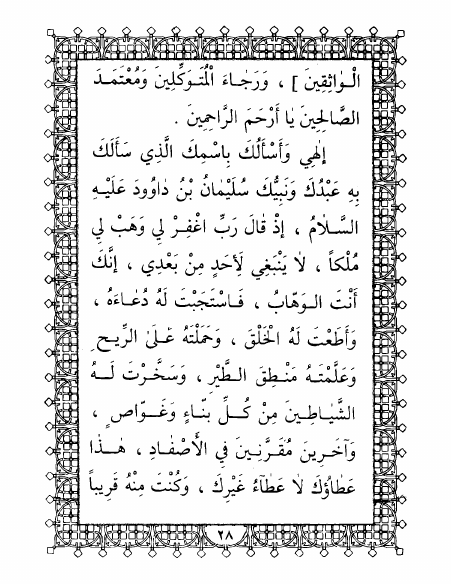 الْوَاثِقِينَ ] ، وَرَجَاءَ الْمُتَوَكِّلِينَ وَمُعْتَمَدَ
الصَّالِحِينَ يَا أَرْحَمَ الرَّاحِمِينَ .
إِلٰهِي وَأَسْأَلُكَ بِاسْمِكَ الَّذِي سَأَلَكَ
بِهِ عَبْدُكَ وَنَبِيُّكَ سُلَيْمَانُ بْنُ دَاوُودَ عَلَيْهِ
السَّلَامُ ، إِذْ قَالَ رَبِّ اغْفِرْ لِي وَهَبْ لِي
مُلْكاً ، لَا يَنْبَغِي لِأَحَدٍ مِنْ بَعْدِي ، إِنَّكَ
أَنْتَ الْوَهَّابُ ، فَاسْتَجَبْتَ لَهُ دُعَاءَهُ ،
وَأَطَعْتَ لَهُ الْخَلْقَ ، وَحَمَلْتَهُ عَلَى الرِّيحِ
وَعَلَّمْتَهُ مَنْطِقَ الطَّيْرِ ، وَسَخَّرْتَ لَهُ
الشَّيَاطِينَ مِنْ كُلِّ بَنَّاءٍ وَغَوَّاصٍ ،
وَآخَرِينَ مُقَرَّنِينَ فِي الْأَصْفَادِ ، هٰذَا
عَطَاؤُكَ لَا عَطَاءُ غَيْرِكَ ، وَكُنْتَ مِنْهُ قَرِيباً
٢٨